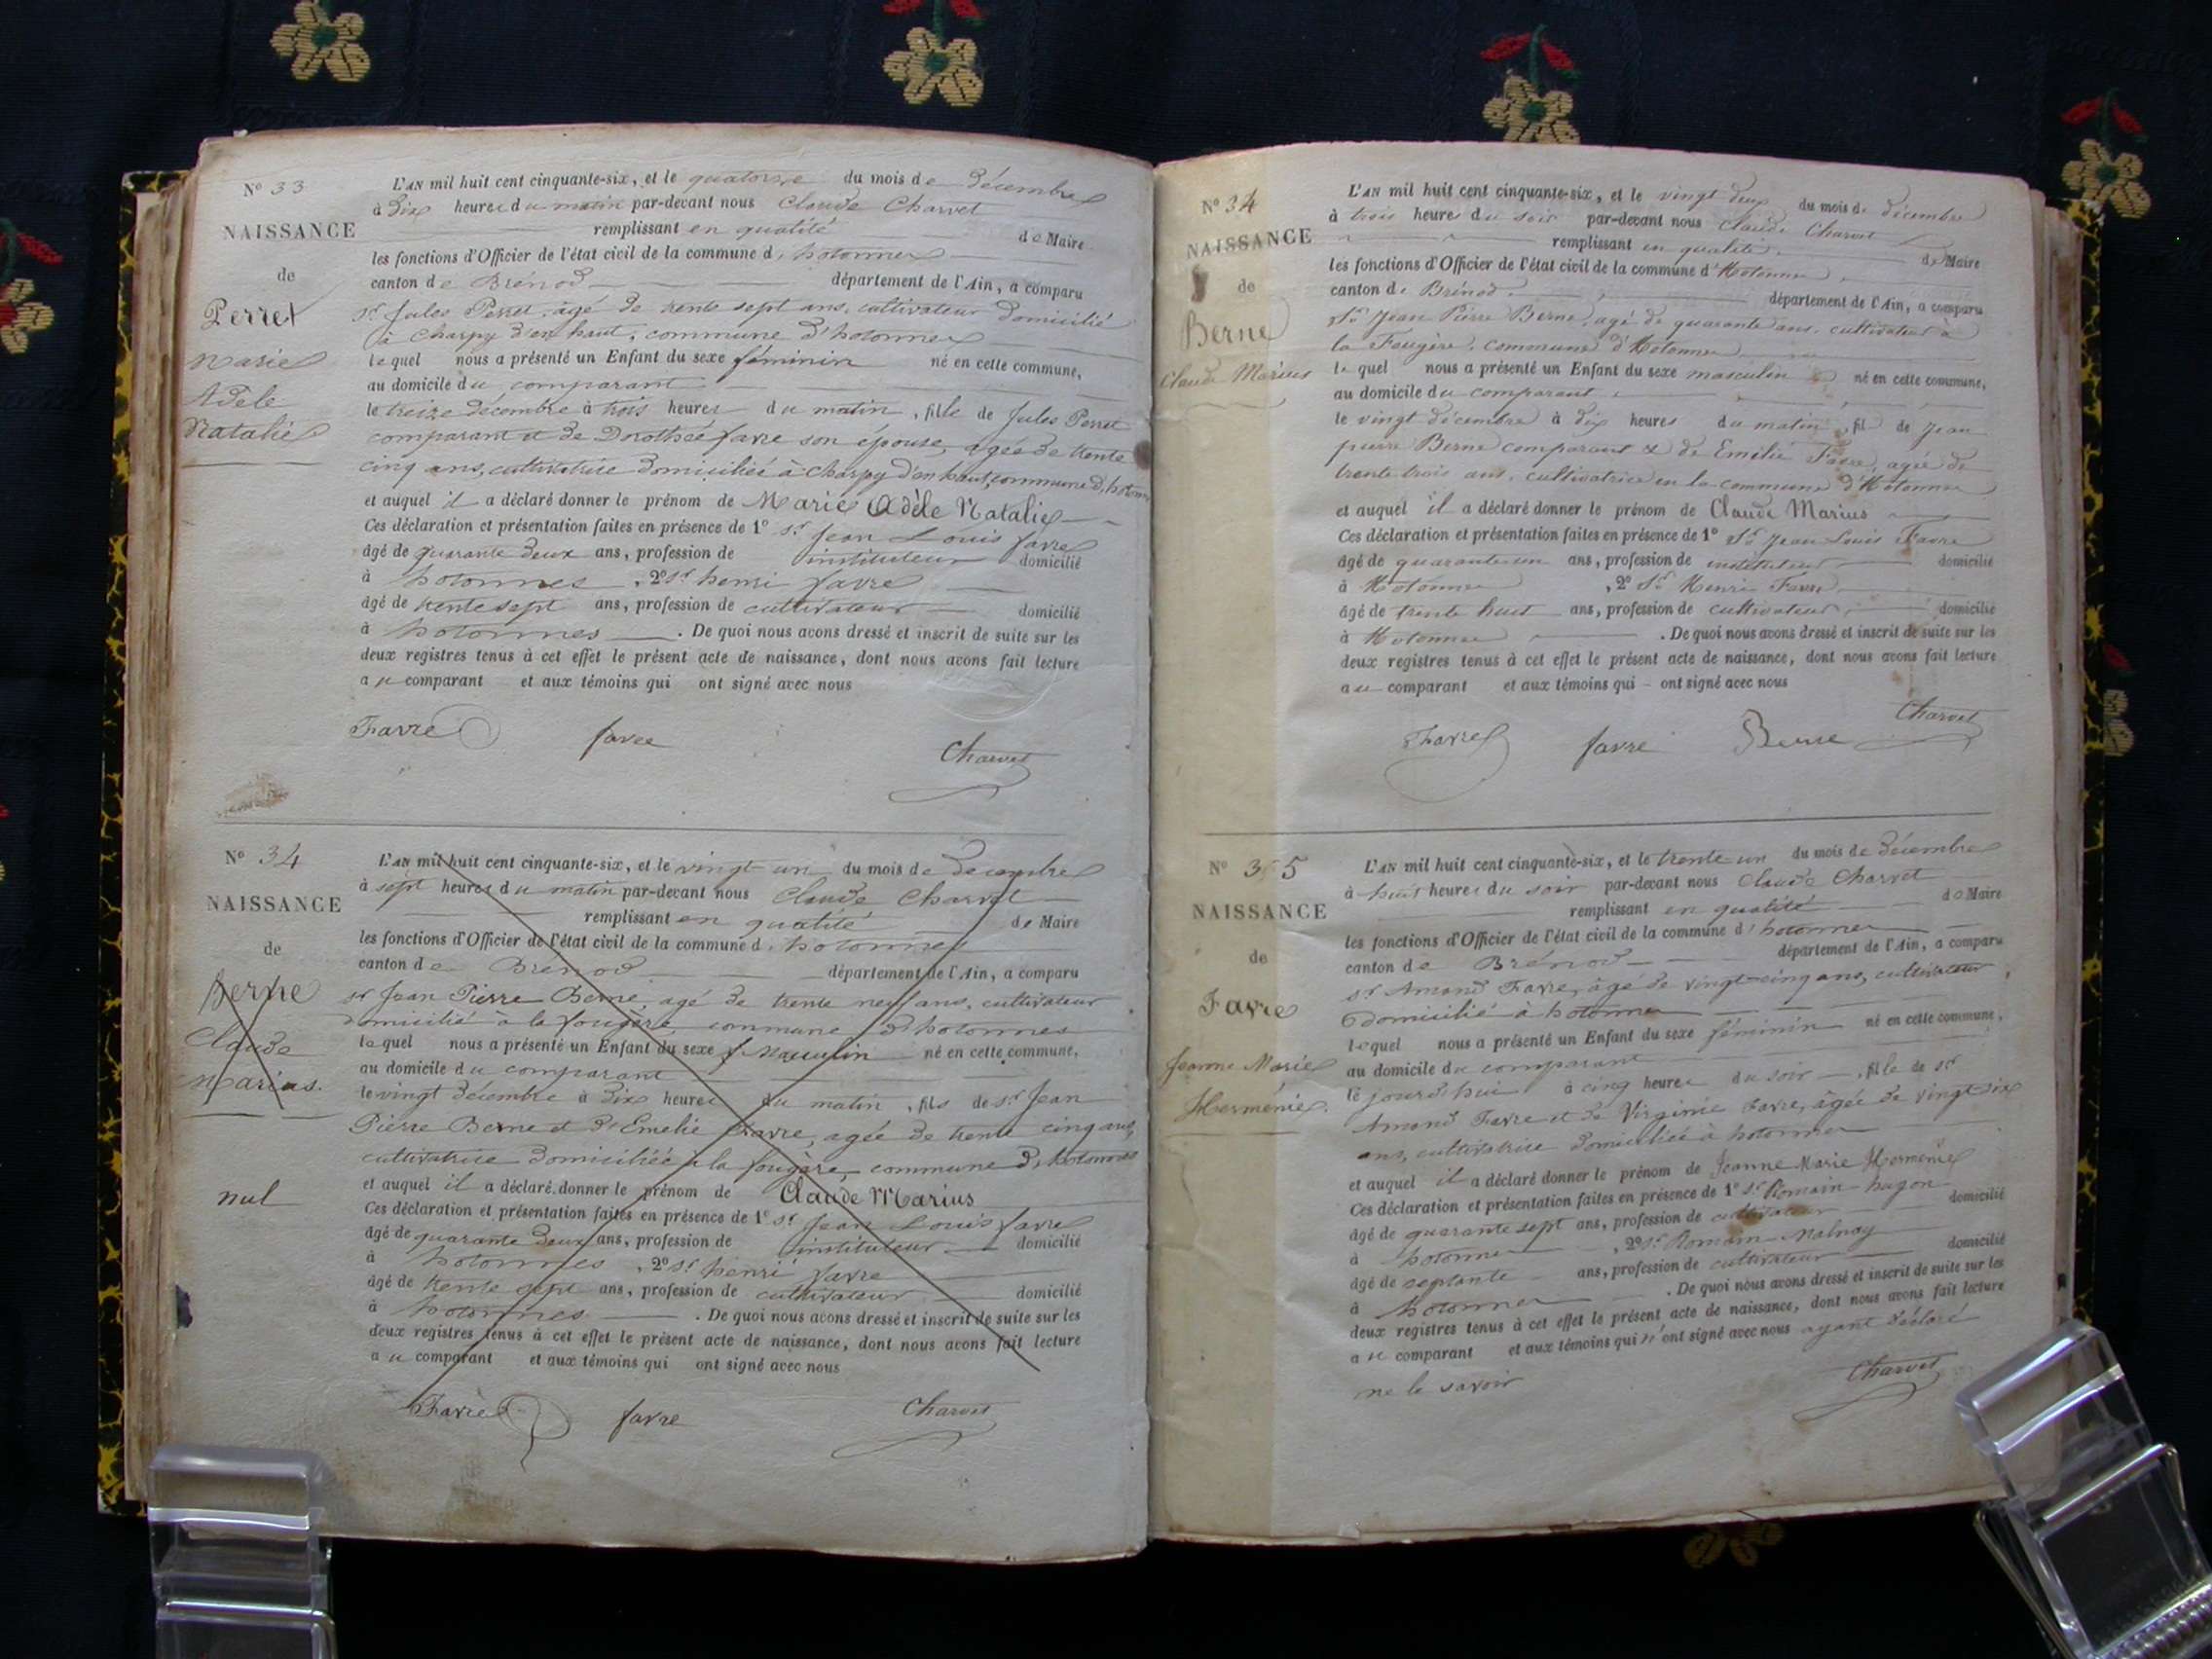 N° 33
NAISSANCE
de
Perret
Marie
Adèle
Natalie
L'AN mil huit cent cinquante-six, et le quatorze du mois de décembre
à dix heures du matin par-devant nous Claude Charvet
remplissant en qualité de Maire
les fonctions d'Officier de l'état civil de la commune d'hotonnes
canton de Brénod département de l'Ain, a comparu
sr Jules Perret, âgé de trente sept ans, cultivateur domicilié
à Charpy d'en haut, commune d'hotonnes
lequel nous a présenté un Enfant du sexe féminin né en cette commune,
au domicile du comparant
le treize décembre à trois heures du matin, fille de Jules Perret
comparant et de Dorothée favre son épouse, agée de trente
cinq ans, cultivatrice domiciliée à Charpy d'en haut, commune d'hotonnes
et auquel il a déclaré donner le prénom de Marie Adèle Natalie
Ces déclaration et présentation faites en présence de 1° sr Jean Louis favre
âgé de quarante deux ans, profession de instituteur domicilié
à hotonnes, 2° sr henri favre
âgé de trente sept ans, profession de cultivateur domicilié
à hotonnes. De quoi nous avons dressé et inscrit de suite sur les
deux registres tenus à cet effet le présent acte de naissance, dont nous avons fait lecture
au comparant et aux témoins qui ont signé avec nous
Favre favre Charvet
N° 34
NAISSANCE
de
Berne
Claude
Marius.
nul
L'AN mil huit cent cinquante-six, et le vingt un du mois de decembre
à sept heures du matin par-devant nous Claude Charvet
remplissant en qualité de Maire
les fonctions d'Officier de l'état civil de la commune d'hotonnes
canton de Brénod département de l'Ain, a comparu
sr Jean Pierre Berne, agé de trente neuf ans, cultivateur
domicilié à la fougère, commune d'hotonnes
lequel nous a présenté un Enfant du sexe Masculin né en cette commune,
au domicile du comparant
le vingt décembre à dix heures du matin, fils de sr Jean
Pierre Berne et d'Emelie favre, agée de trente cinq ans,
cultivatrice domiciliée à la fougère, commune d'hotonnes
et auquel il a déclaré donner le prénom de Claude Marius
Ces déclaration et présentation faites en présence de 1° sr Jean Louis favre
âgé de quarante deux ans, profession de instituteur domicilié
à hotonnes, 2° sr henri favre
âgé de trente sept ans, profession de cultivateur domicilié
à hotonnes. De quoi nous avons dressé et inscrit de suite sur les
deux registres tenus à cet effet le présent acte de naissance, dont nous avons fait lecture
au comparant et aux témoins qui ont signé avec nous
Favre favre Charvet
N° 34
NAISSANCE
de
Berne
Claude Marius
L'AN mil huit cent cinquante-six, et le vingt deux du mois de décembre
à trois heures du soir par-devant nous Claude Charvet
remplissant en qualité de Maire
les fonctions d'Officier de l'état civil de la commune d'Hotonne
canton de Brénod département de l'Ain, a comparu
Sr Jean Pierre Berne, agé de quarante ans, cultivateur à
la Fougère, commune d'Hotonne
le quel nous a présenté un Enfant du sexe masculin né en cette commune,
au domicile du comparant
le vingt décembre à dix heures du matin, fil de Jean
pierre Berne comparant & de Emélie Favre, agée de
trente trois ans, cultivatrice en la commune d'Hotonne
et auquel il a déclaré donner le prénom de Claude Marius
Ces déclaration et présentation faites en présence de 1° Sr Jean Louis Favre
âgé de quarante un ans, profession de instituteur domicilié
à Hotonne, 2° Sr Henri Favre
âgé de trente huit ans, profession de cultivateur domicilié
à Hotonne. De quoi nous avons dressé et inscrit de suite sur les
deux registres tenus à cet effet le présent acte de naissance, dont nous avons fait lecture
au comparant et aux témoins qui ont signé avec nous
Favre favre Berne Charvet
N° 35
NAISSANCE
de
Favre
Jeanne Marie
Herménie.
L'AN mil huit cent cinquante-six, et le trente un du mois de décembre
à huit heures du soir par-devant nous Claude Charvet
remplissant en qualité de Maire
les fonctions d'Officier de l'état civil de la commune d'hotonne
canton de Brénod département de l'Ain, a comparu
sr Amand Favre, âgé de vingt-cinq ans, cultivateur,
domicilié à hotonne
lequel nous a présenté un Enfant du sexe féminin né en cette commune,
au domicile du comparant
le jourd'hui à cinq heures du soir, fille de sr
Amand Favre et de Virginie Favre, âgée de vingt six
ans, cultivatrice domiciliée à hotonne
et auquel il a déclaré donner le prénom de Jeanne Marie Herménie
Ces déclaration et présentation faites en présence de 1° sr Romain hugon
âgé de quarante sept ans, profession de cultivateur domicilié
à hotonne, 2° sr Romain Malnoy
âgé de septante ans, profession de cultivateur domicilié
à hotonne. De quoi nous avons dressé et inscrit de suite sur les
deux registres tenus à cet effet le présent acte de naissance, dont nous avons fait lecture
au comparant et aux témoins qui n'ont signé avec nous ayant déclaré
ne le savoir Charvet